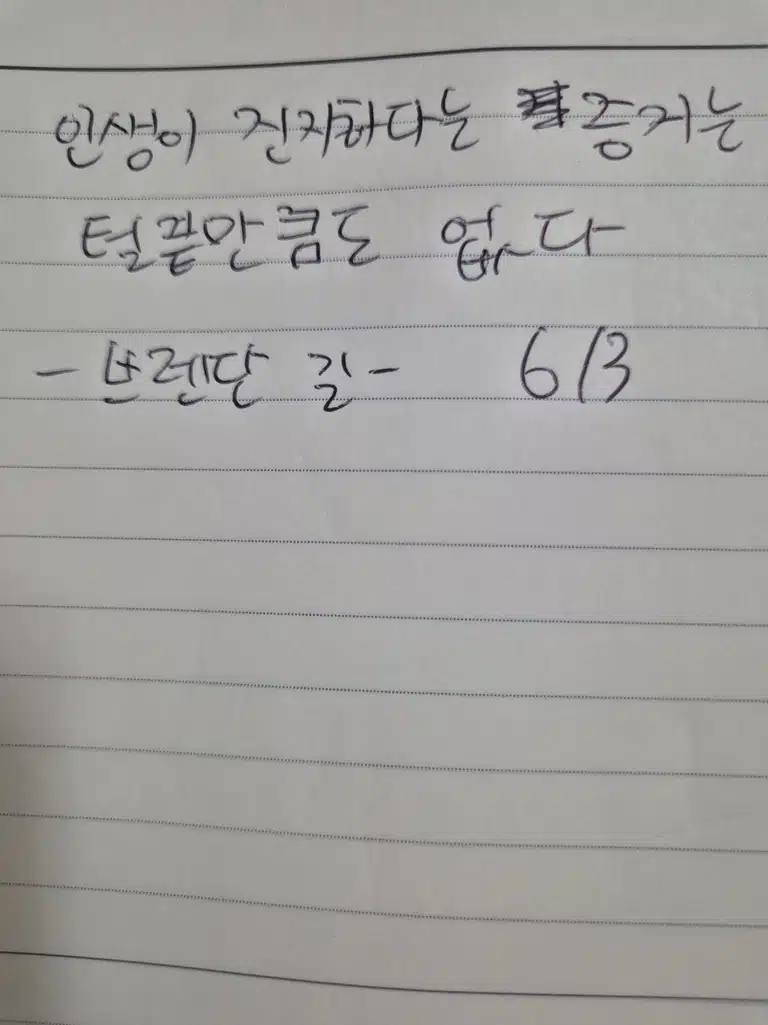 인생이 진지하다는 증거는
털끝만큼도 없다
- 브렌단 길- 6/3